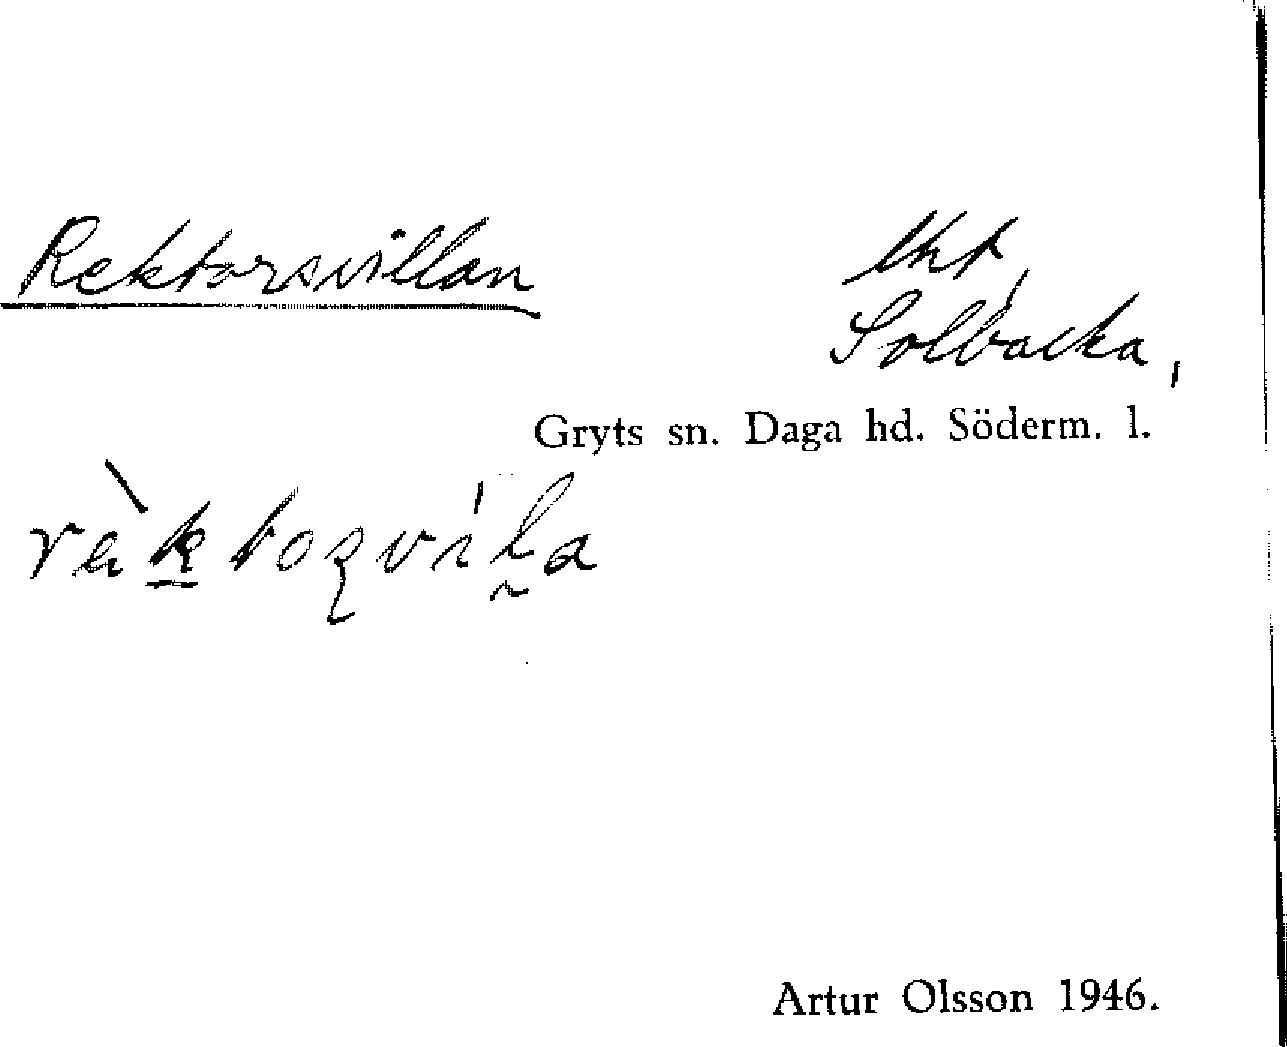 Rektorsvillan lht,
Solbacka,
Gryts sn. Daga hd. Söderm. l.
Artur Olsson 1946.